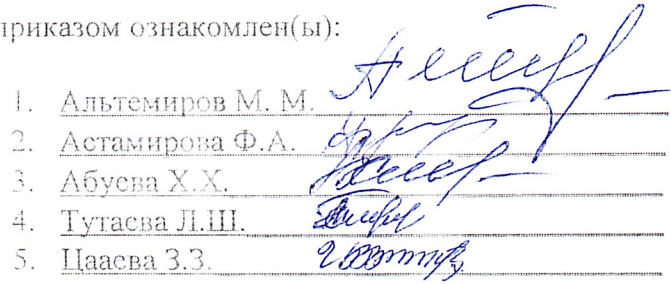 приказом ознакомлен(ы):
1. Альтемиров М. М.
2. Астамирова Ф.А.
3. Абуева Х.Х.
4. Тутаева Л.Ш.
5. Цааева З.З.